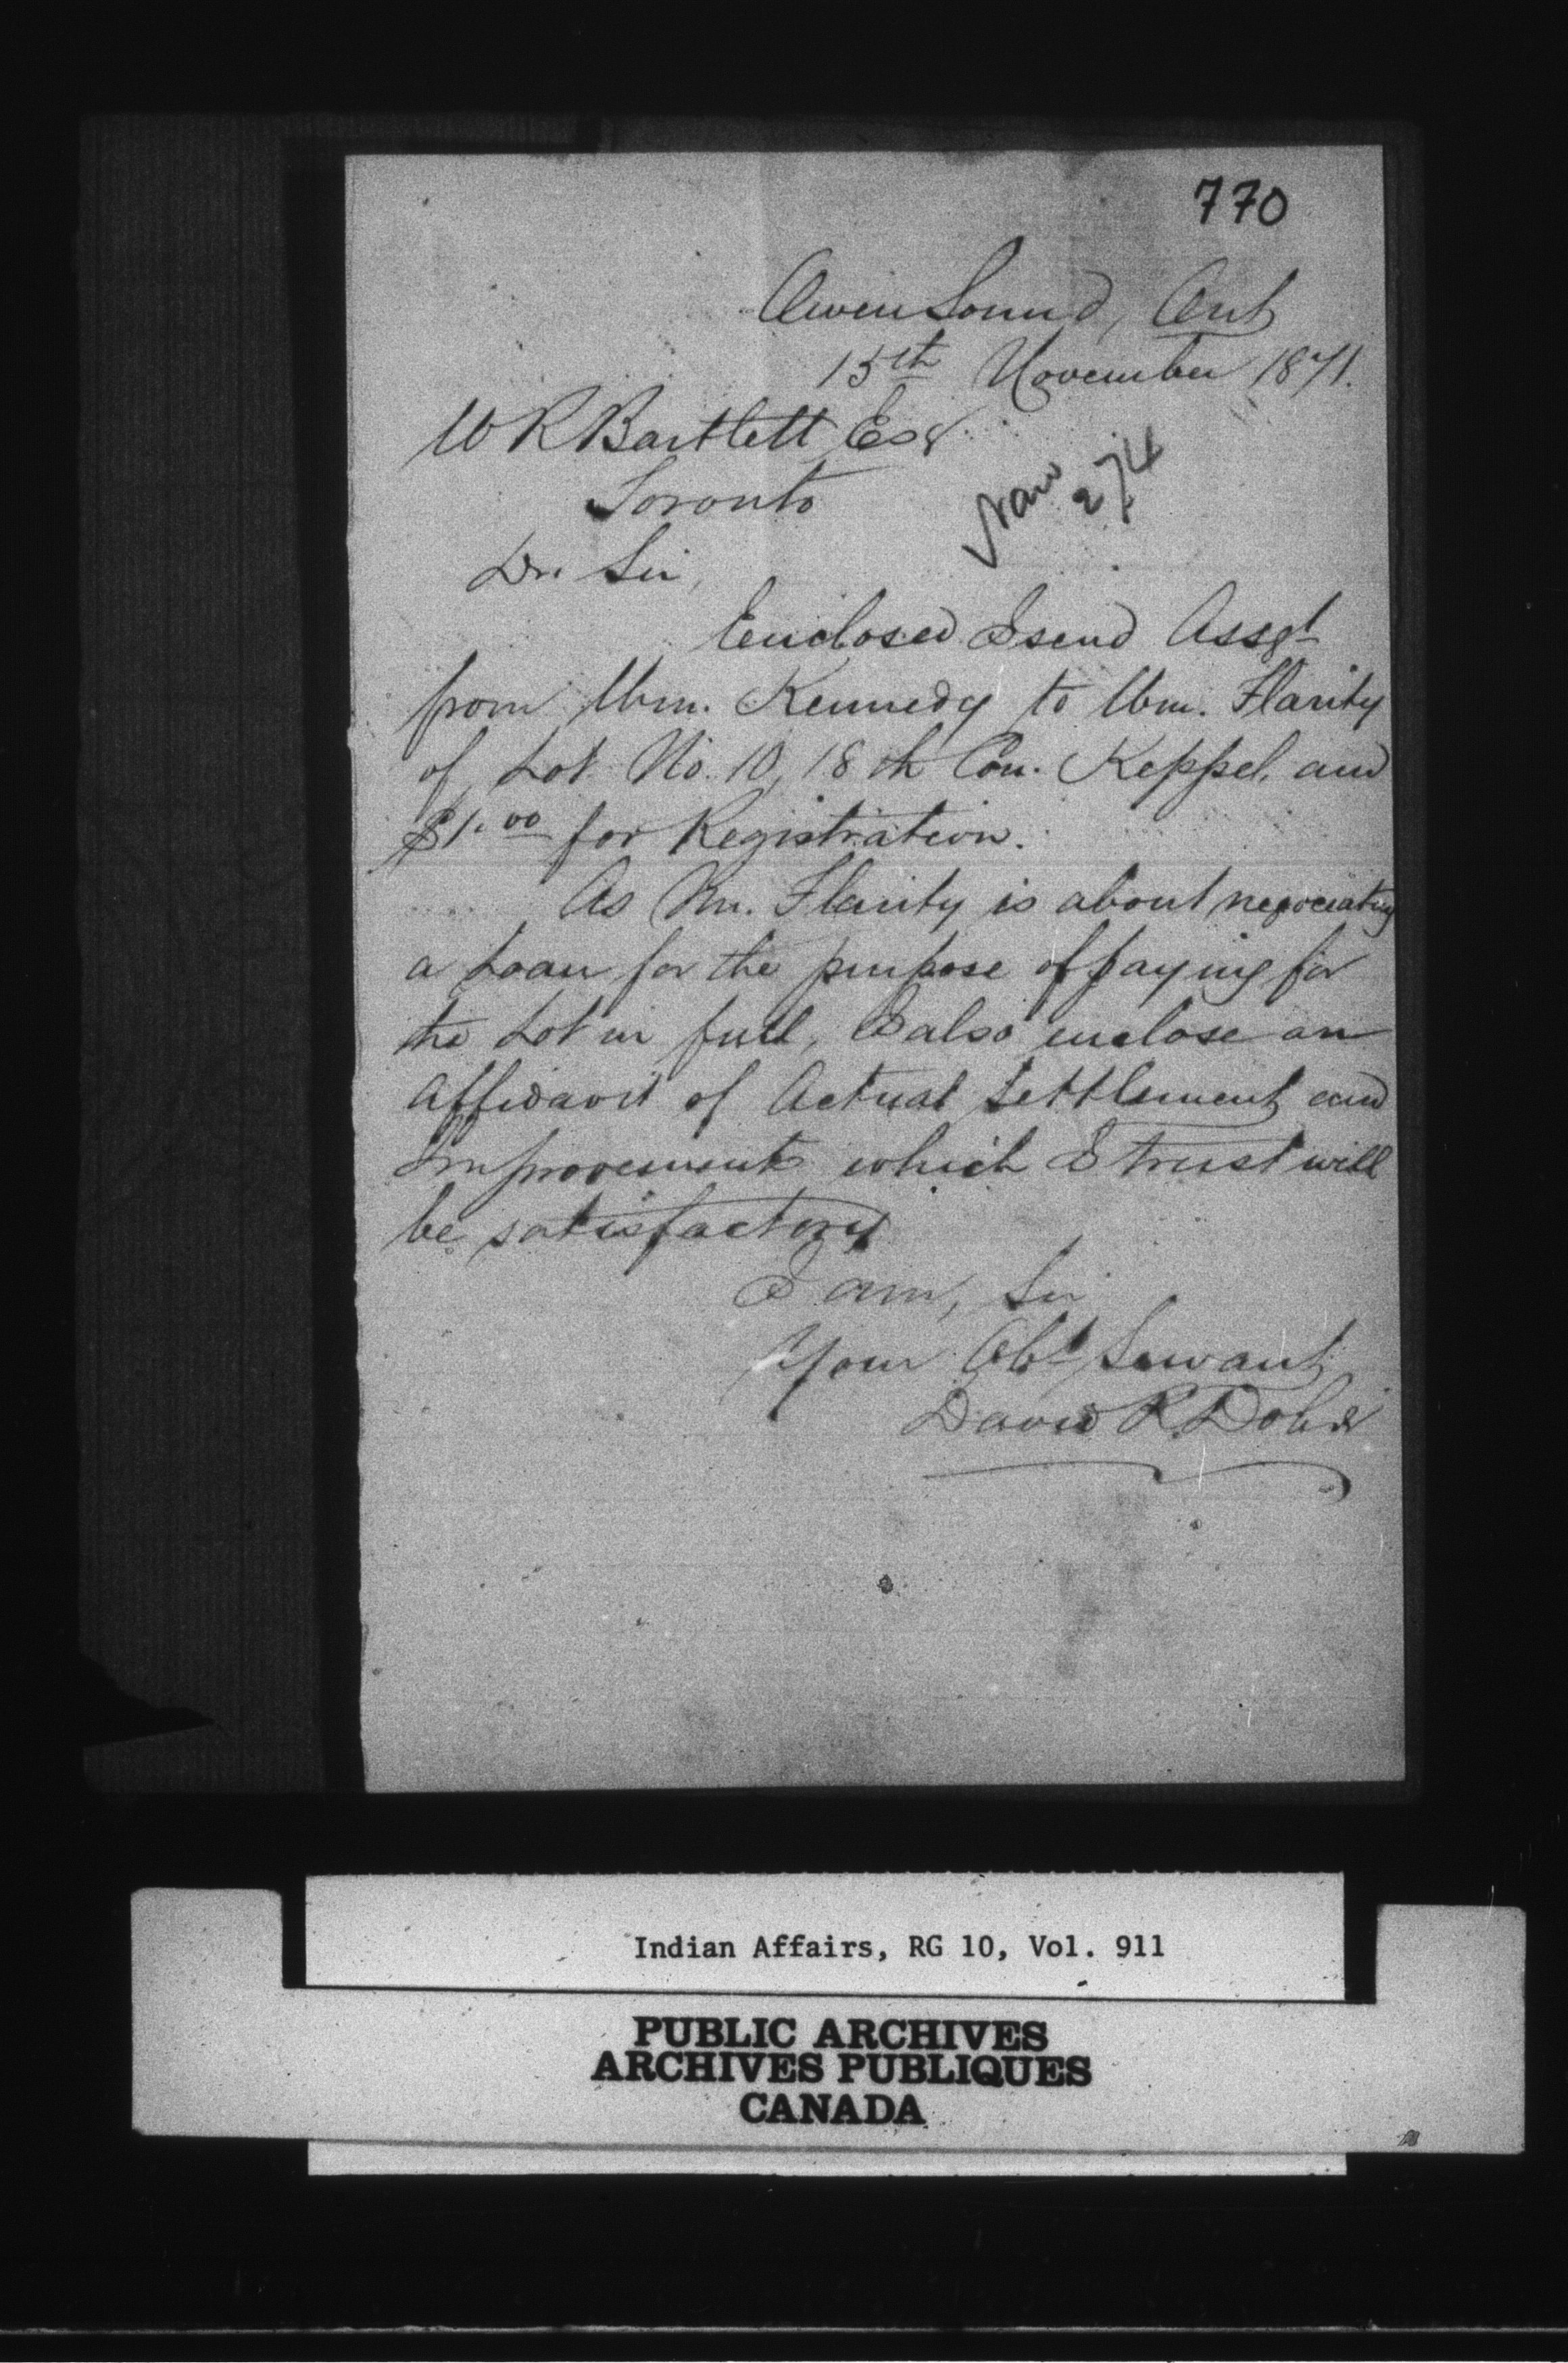 770
Owen Sound, Ont
15th November 1871.
W R Bartlett Esq
Toronto
274
Dr. Sir,
Enclosed I send Assgt
from Wm. Kennedy to Wm. Flarity
of Lot No. 10, 18th Con. Keppel, and
$1.00 for Registration.
As Mr. Flarity is about negociating
a Loan for the purpose of paying for
the Lot in full, I also enclose an
Affidavit of Actual Settlement and
Improvement which I trust will
be satisfactory
I am, Sir
Your Obt Servant
David R. Dobie
Indian Affairs, RG 10, Vol. 911
PUBLIC ARCHIVES
ARCHIVES PUBLIQUES
CANADA